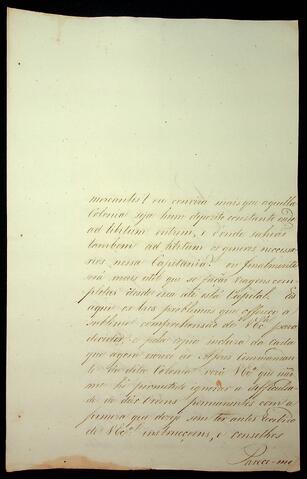 mercantes? ou convirá mais que aquella
Colonia seja hum deposito constante onde
ad libitum entrem, e d'onde saihão
tambem ad libitum os generos necessa-
rios nessa Capitania? ou finalmente
será mais util que se fação viagens com-
pletas desde ella até esta Capital. Eis
aqui os tres problemas que offereço á
sublime comprehensão de V.Exª para
decidir, e pela copia inclusa da carta
que agora escrevo ao Alferes Commandan-
te da dita Colonia verá V.Exª que não
me he permitido ignorar a difficulda-
de de dar Ordens permanentes com a
firmeza que devo sem ter antes recebido
de V.Exª instrucçoens, e conselhos
Parece-me